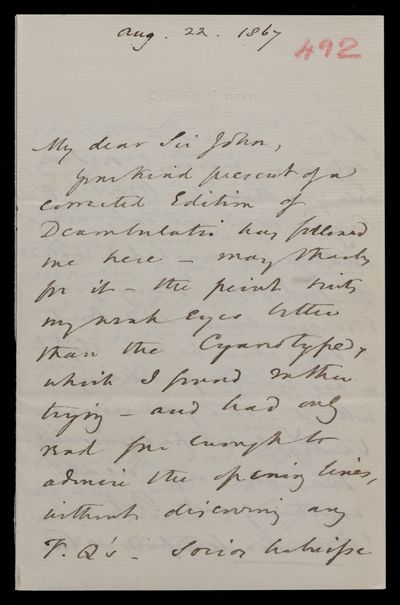 Aug. 22. 1867
492
Bromfield Vicarage
My dear Sir John,
your kind present of a
corrected Edition of
Deambulatio has followed
me here – many thanks
for it – the print suits
my weak eyes better
than the Cyanotype,
which I found rather
trying – and had only
read far enough to
admire the opening lines,
without discovering any
F. Q's –